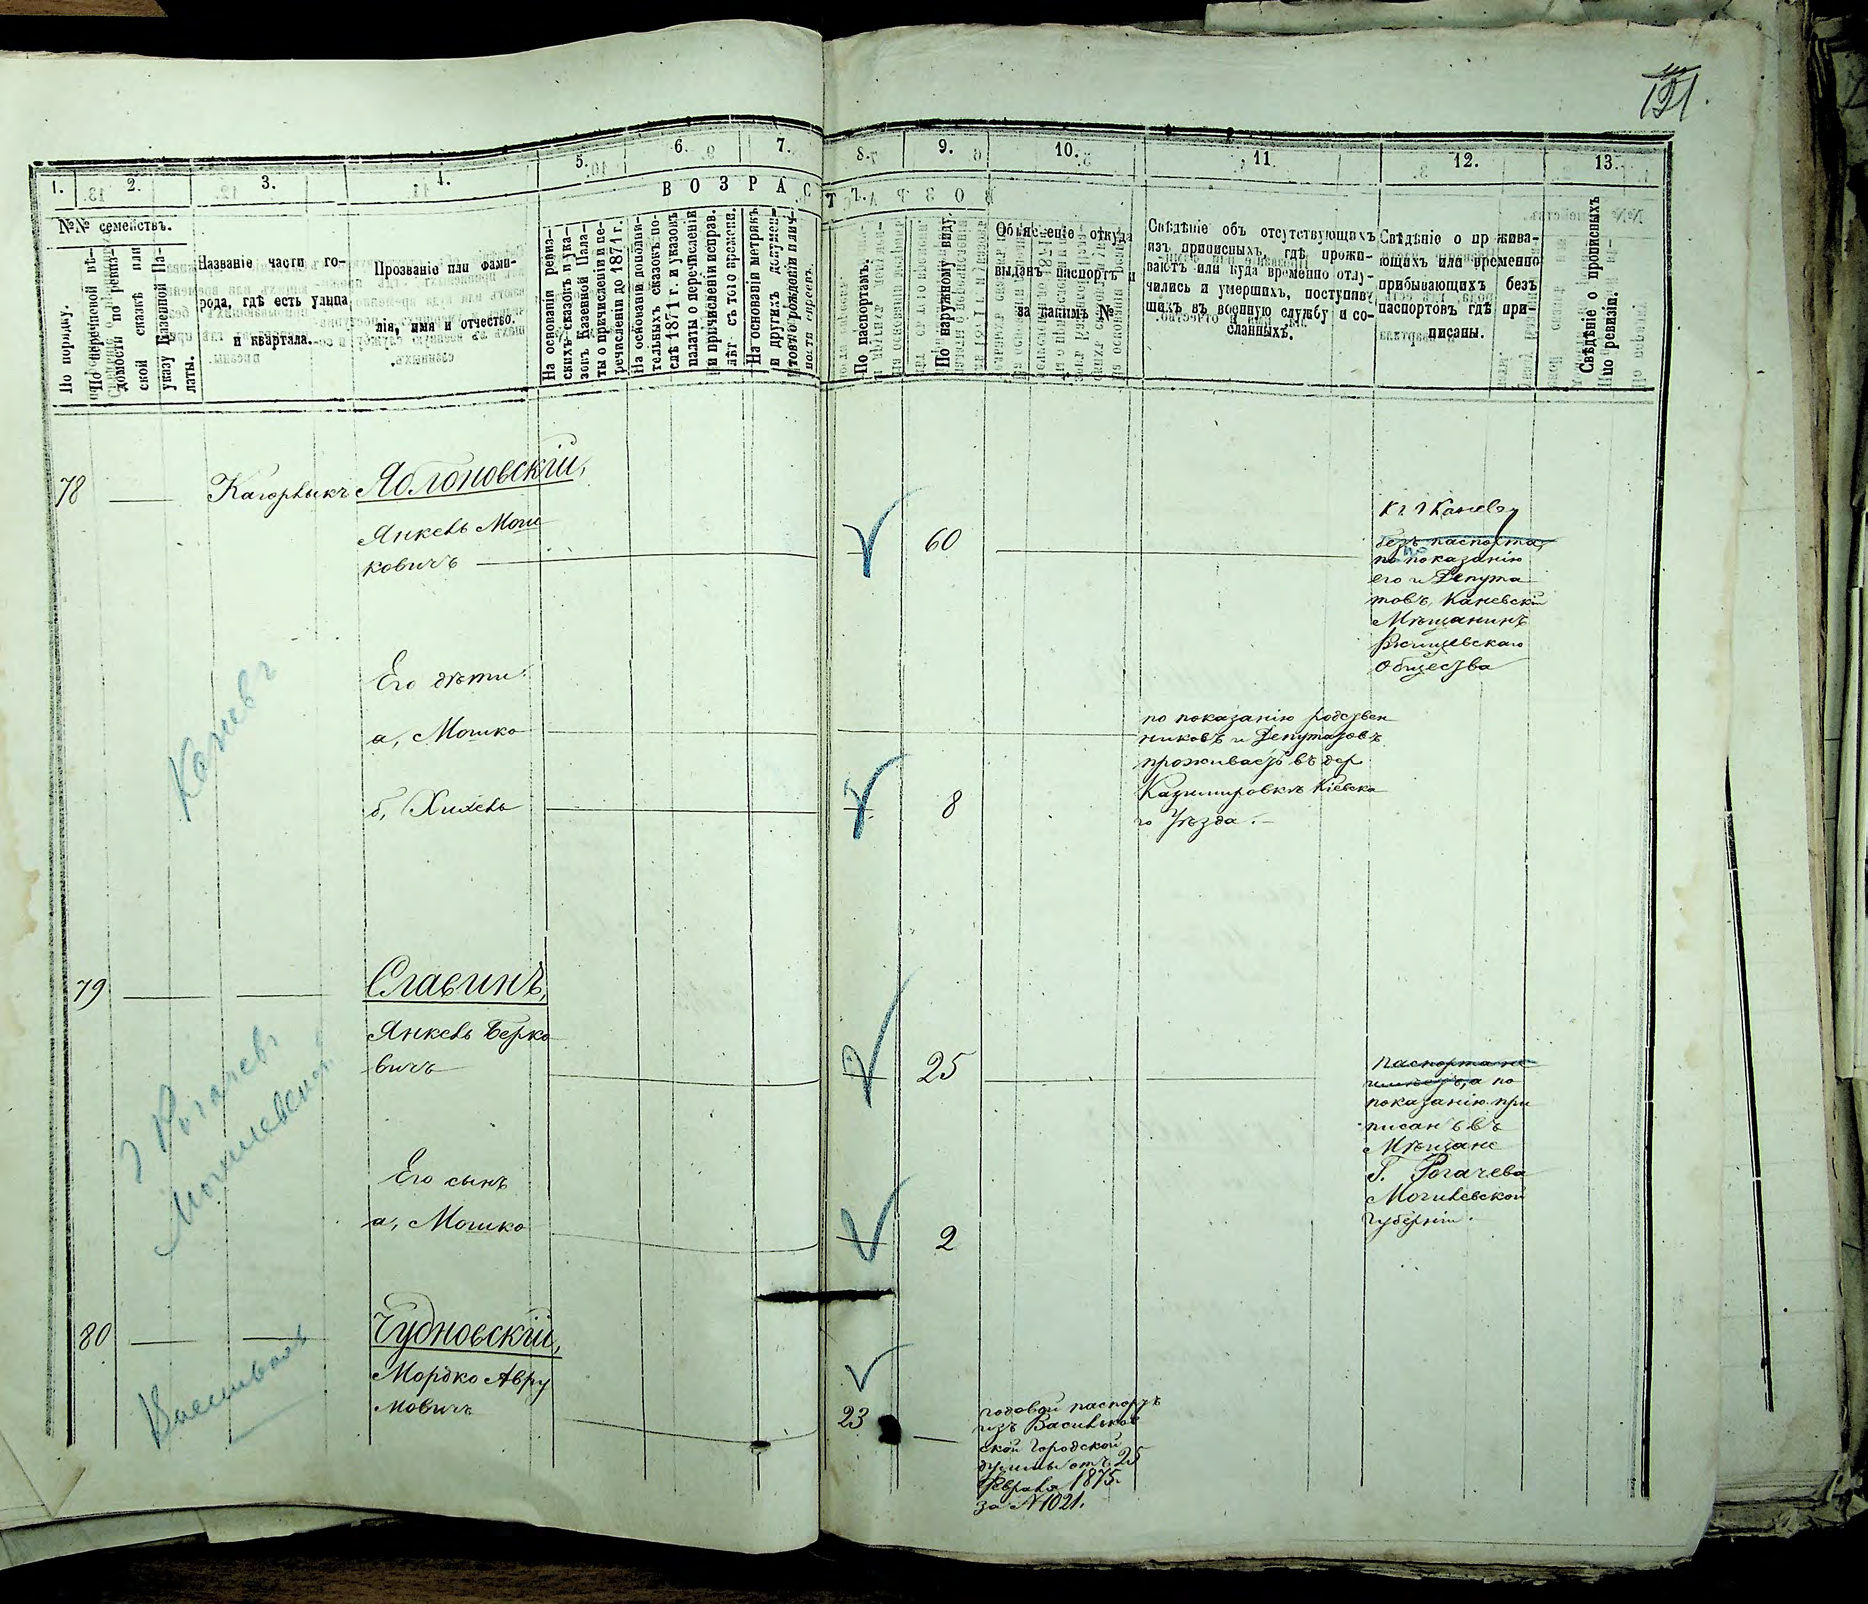 151.
1. 2. 3. 4. 5. 6. 7. 8. 9. 10. 11. 12. 13.
ВОЗРАСТЪ.
№№ семействъ.
По порядку.
По перечневой вѣ-
домости по ревиз-
ской сказкѣ или
указу Казенной Па-
латы.
Названіе части го-
рода, гдѣ есть улица
и кварталa.
Прозваніе или фами-
лія, имя и отчество.
На основаніи ревиз-
скихъ сказокъ и ука-
зовъ Казенной Пала-
ты о причисленіи и пе-
речисленіи до 1871 г.
На основаніи дополни-
тельныхъ сказокъ по-
слѣ 1871 г. и указовъ
палаты о перечисленіи
и причисленіи исправ.
лѣт съ того времени.
На основаніи метрикъ
и другихъ докумен-
товъ о рожденіи и лич-
ности
По паспортамъ.
По наружному виду.
Объясненіе откуда
выданъ паспортъ и
за какимъ №
Свѣдѣніе объ отсутствующихъ
изъ приписныхъ, гдѣ прожи-
ваютъ или куда временно отлу-
чились и умершихъ, поступив-
шихъ въ военную службу и со-
сланныхъ.
Свѣдѣніе о прожива-
ющихъ или временно
прибывающихъ безъ
паспортовъ гдѣ при-
писаны.
Свѣдѣніе о прописныхъ
по ревизіи.
78 Кагорлыкъ Яблоновскій,
Янкель Мош
ковичъ
60
Каневу
безъ паспорта,
по показанію
его и Депута
товъ, Каневскій
Мѣщанинъ
Ржищевскаго
Общества
Каневъ
Его дѣти
а, Мошко
по показанію родствен
никовъ и Депутатовъ
проживаетъ въ дер
Казимировкѣ Кіевска
го Уѣзда.
б, Хилель
8
79
Славинъ,
Янкель Берко
вичъ
25
Паспорта не
имѣетъ, а по
показанію при
писанъ въ
Мѣщане
Г. Рогачева
Могилевской
губерніи.
г Рогачевъ
Могилевской
Его сынъ
а, Мошко
2
80
Чудновскій,
Мордко Авру
мовичъ
23
годовой паспортъ
изъ Васильков
ской Городской
думы отъ 25
Февраля 1875
за №1021.
Васильковъ